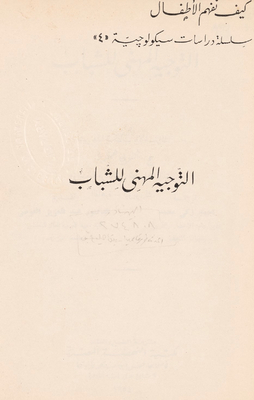 كيف نفهم الأطفال
سلسلة دراسات سيكولوچية «٤»
التوجيه المهنى للشباب